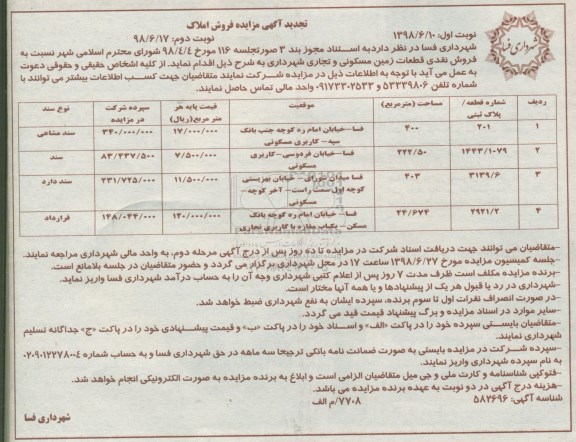 تجدید آگهی مزایده فروش املاک
نوبت اول: ۱۳۹۸/۶/۱۰ نوبت دوم: ۹۸/۶/۱۷
شهرداری فسا در نظر دارد به استناد مجوز بند ۳ صورتجلسه ۱۱۶ مورخ ۹۸/۴/۴ شورای محترم اسلامی شهر نسبت به
فروش نقدی قطعات زمین مسکونی و تجاری شهرداری به شرح ذیل اقدام نماید. از کلیه اشخاص حقیقی و حقوقی دعوت
به عمل می آید با توجه به اطلاعات ذیل در مزایده شرکت نمایند متقاضیان جهت کسب اطلاعات بیشتر می توانند با
شماره تلفن ۵۳۳۳۹۸۰۶ و ۰۹۱۷۳۳۰۲۵۳۳ واحد مالی تماس حاصل نمایند.
شهرداری فسا
ردیف شماره قطعه / پلاک ثبتی مساحت (مترمربع) موقعیت قیمت پایه هر متر مربع(ریال) سپرده شرکت در مزایده نوع سند
۱ ۲۰۱ ۴۰۰ فسا–خیابان امام ره کوچه جنب بانک سپه– کاربری مسکونی ۱۷/۰۰۰/۰۰۰ ۳۴۰/۰۰۰/۰۰۰ سند مشاعی
۲ ۱۴۴۳/۱۰۷۹ ۲۲۲/۵۰ فسا–خیابان فردوسی–کاربری مسکونی ۷/۵۰۰/۰۰۰ ۸۳/۴۳۷/۵۰۰ سند
۳ ۳۱۳۹/۶ ۴۰۳ فسا میدان شورای – خیابان بهزیستی کوچه اول سمت راست– آخر کوچه– مسکونی ۱۱/۵۰۰/۰۰۰ ۲۳۱/۷۲۵/۰۰۰ سند دارد
۴ ۲۹۲۱/۲ ۲۴/۶۷۴ فسا– خیابان امام ره کوچه بانک مسکن – یکباب مغازه با کاربری تجاری ۱۲۰/۰۰۰/۰۰۰ ۱۴۸/۰۴۴/۰۰۰ قرارداد
–متقاضیان می توانند جهت دریافت اسناد شرکت در مزایده تا ده روز پس از درج آگهی مرحله دوم، به واحد مالی شهرداری مراجعه نمایند.
–جلسه کمیسیون مزایده مورخ ۱۳۹۸/۶/۲۷ ساعت ۱۷ در محل شهرداری برگزار می گردد و حضور متقاضیان در جلسه بلامانع است.
–برنده مزایده مکلف است ظرف مدت ۷ روز پس از اعلام کتبی شهرداری وجه آن را به حساب درآمد شهرداری فسا واریز نماید.
–شهرداری در رد یا قبول هر یک از پیشنهادها و یا همه آنها مختار است.
–در صورت انصراف نفرات اول تا سوم برنده، سپرده ایشان به نفع شهرداری ضبط خواهد شد.
–سایر موارد در اسناد مزایده و برگ پیشنهاد قیمت قید می گردد.
–متقاضیان بایستی سپرده خود را در پاکت «الف» و اسناد خود را در پاکت «ب» و قیمت پیشنهادی خود را در پاکت «ج» جداگانه تسلیم
شهرداری نمایند.
–سپرده شرکت در مزایده بایستی به صورت ضمانت نامه بانکی ترجیحا سه ماهه در حق شهرداری فسا و به حساب شماره ۰۲۰۹۰۱۲۲۷۸۰۰۴
به نام سپرده شهرداری واریز نمایند.
–فتوکپی شناسنامه و کارت ملی و جی میل متقاضیان الزامی است و ابلاغ به برنده مزایده به صورت الکترونیکی انجام خواهد شد.
–هزینه درج آگهی در دو نوبت به عهده برنده مزایده می باشد.
شناسه آگهی: ۵۸۲۶۹۶ ۷۷۰۸/م الف
شهرداری فسا